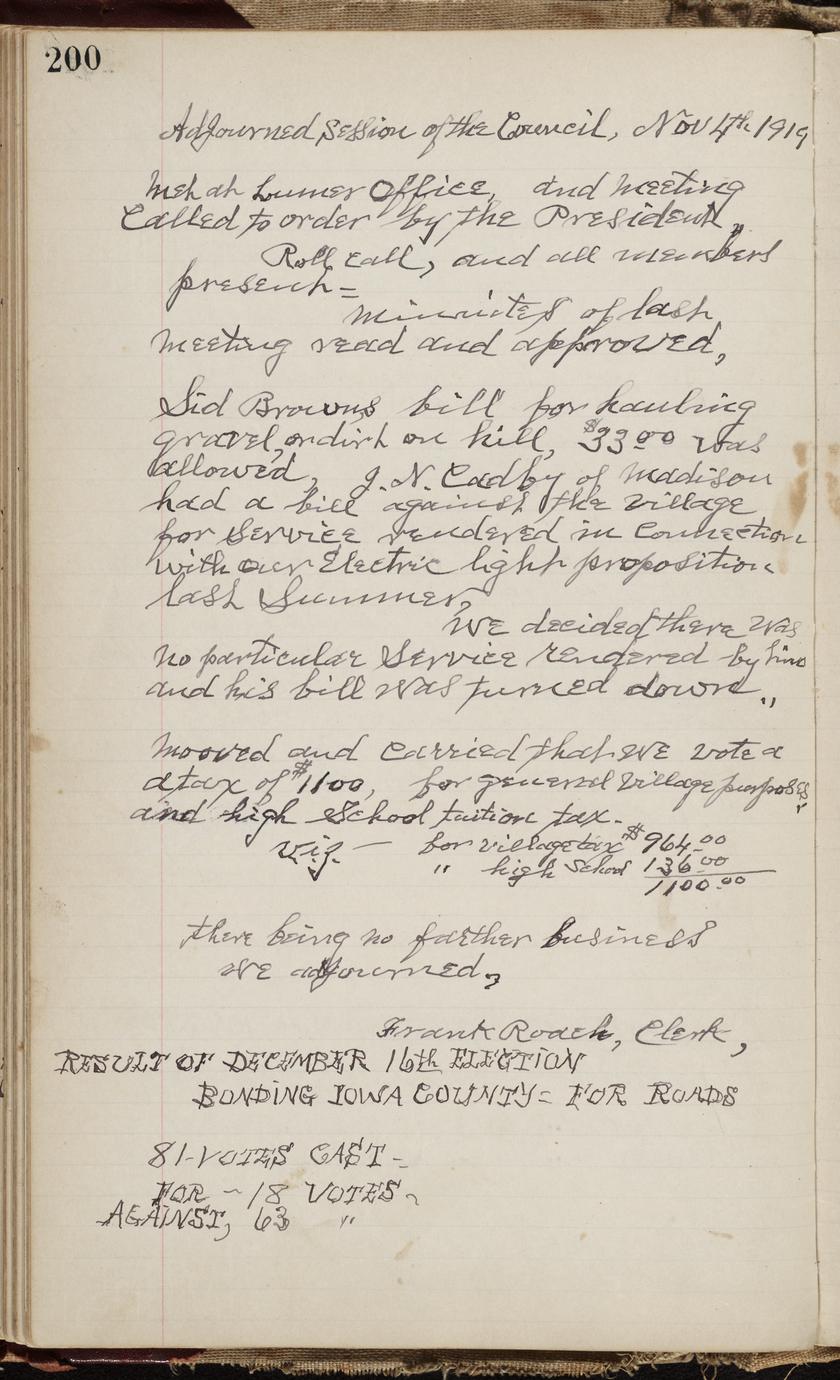 200
Adjourned Session of the Council, Nov 4th 1919
Met at Lumer Office, and Meeting
Called to order by the President,,
Roll call, and all members
present =
minuites of last
meeting read and approved,
Sid Browns bill for hauling
gravel, or dirt on hill, $33.00 was
allowed, J. N. Cadby of Madison
had a bill against the Village
for Service rendered in Connection
with our Electric light proposition
last Summer,
We decided there was
no particular Service rendered by him
and his bill was turned down,,
mooved and carried that we vote a
a tax of $1100, for general Village purposes,
and high School tuition tax.
viz — for village tax $964.00
" high School 136.00
1100.00
there being no farther business
we adjourned,
Frank Roach, Clerk,
RESULT OF DECEMBER 16th ELECTION
BONDING IOWA COUNTY = FOR ROADS
81-VOTES CAST -
FOR - 18 VOTES -
AGAINST, 63 "